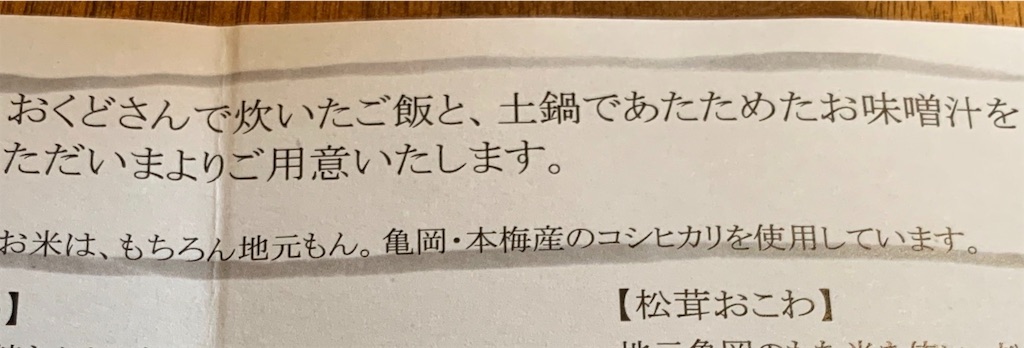 おくどさんで炊いたご飯と、土鍋であたためたお味噌汁を
ただいまよりご用意いたします。
お米は、もちろん地元もん。亀岡・本梅産のコシヒカリを使用しています。
】
【松茸おこわ】